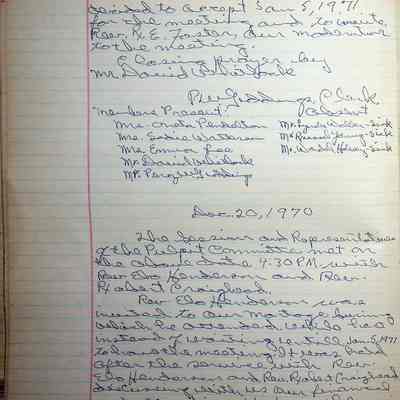 decided to accept Jan 5, 1971
for the meeting and to invite
Rev. K. E. Foster, our moderator
to the meeting.
Closing prayer by
Mr. David Whitlock
Clerk
Members Present: Absent
Mrs. Oneta Pendleton Mr. Lyndy Walker - Sick
Mrs. Sadie Waterman Mr. Russell Henry - Sick
Mrs. Emma Lee Mr. Wardie Henry - Sick
Mr. David Whitlock
Mr. Giddings
Dec. 20, 1970
The Session and Representatives
of the Pulpit Committee met on
the above date 4:30 P.M. with
Rev. Elo Henderson and Rev.
Robert Craighead.
Rev Elo Henderson was
invited to our
which he attended, while here
instead of waiting until Jan. 5, 1971
to have the meeting it was held
after the service with Rev.
Elo Henderson and Rev. Robert Craighead
discussing with us our financial